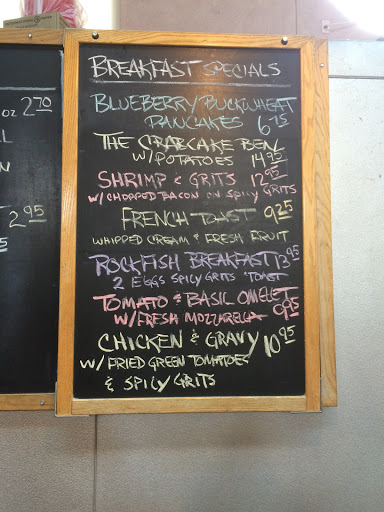 BREAKFAST SPECIALS
BLUEBERRY BUCKWHEAT
PANCAKES 6.75
THE CRABCAKE BENL
W/POTATOES 14.95
SHRIMP & GRITS 12.95
W/CHOPPED BACON ON SPICY GRITS
FRENCH TOAST 9.25
WHIPPED CREAM & FRESH FRUIT
ROCKFISH BREAKFAST 13.95
2 EGGS SPICY GRITS TOAST
TOMATO & BASIL OMELET
W/FRESH MOZZARELLA 9.95
CHICKEN & GRAVY 10.95
W/FRIED GREEN TOMATOES
& SPICY GRITS
oz 2.70
2.95